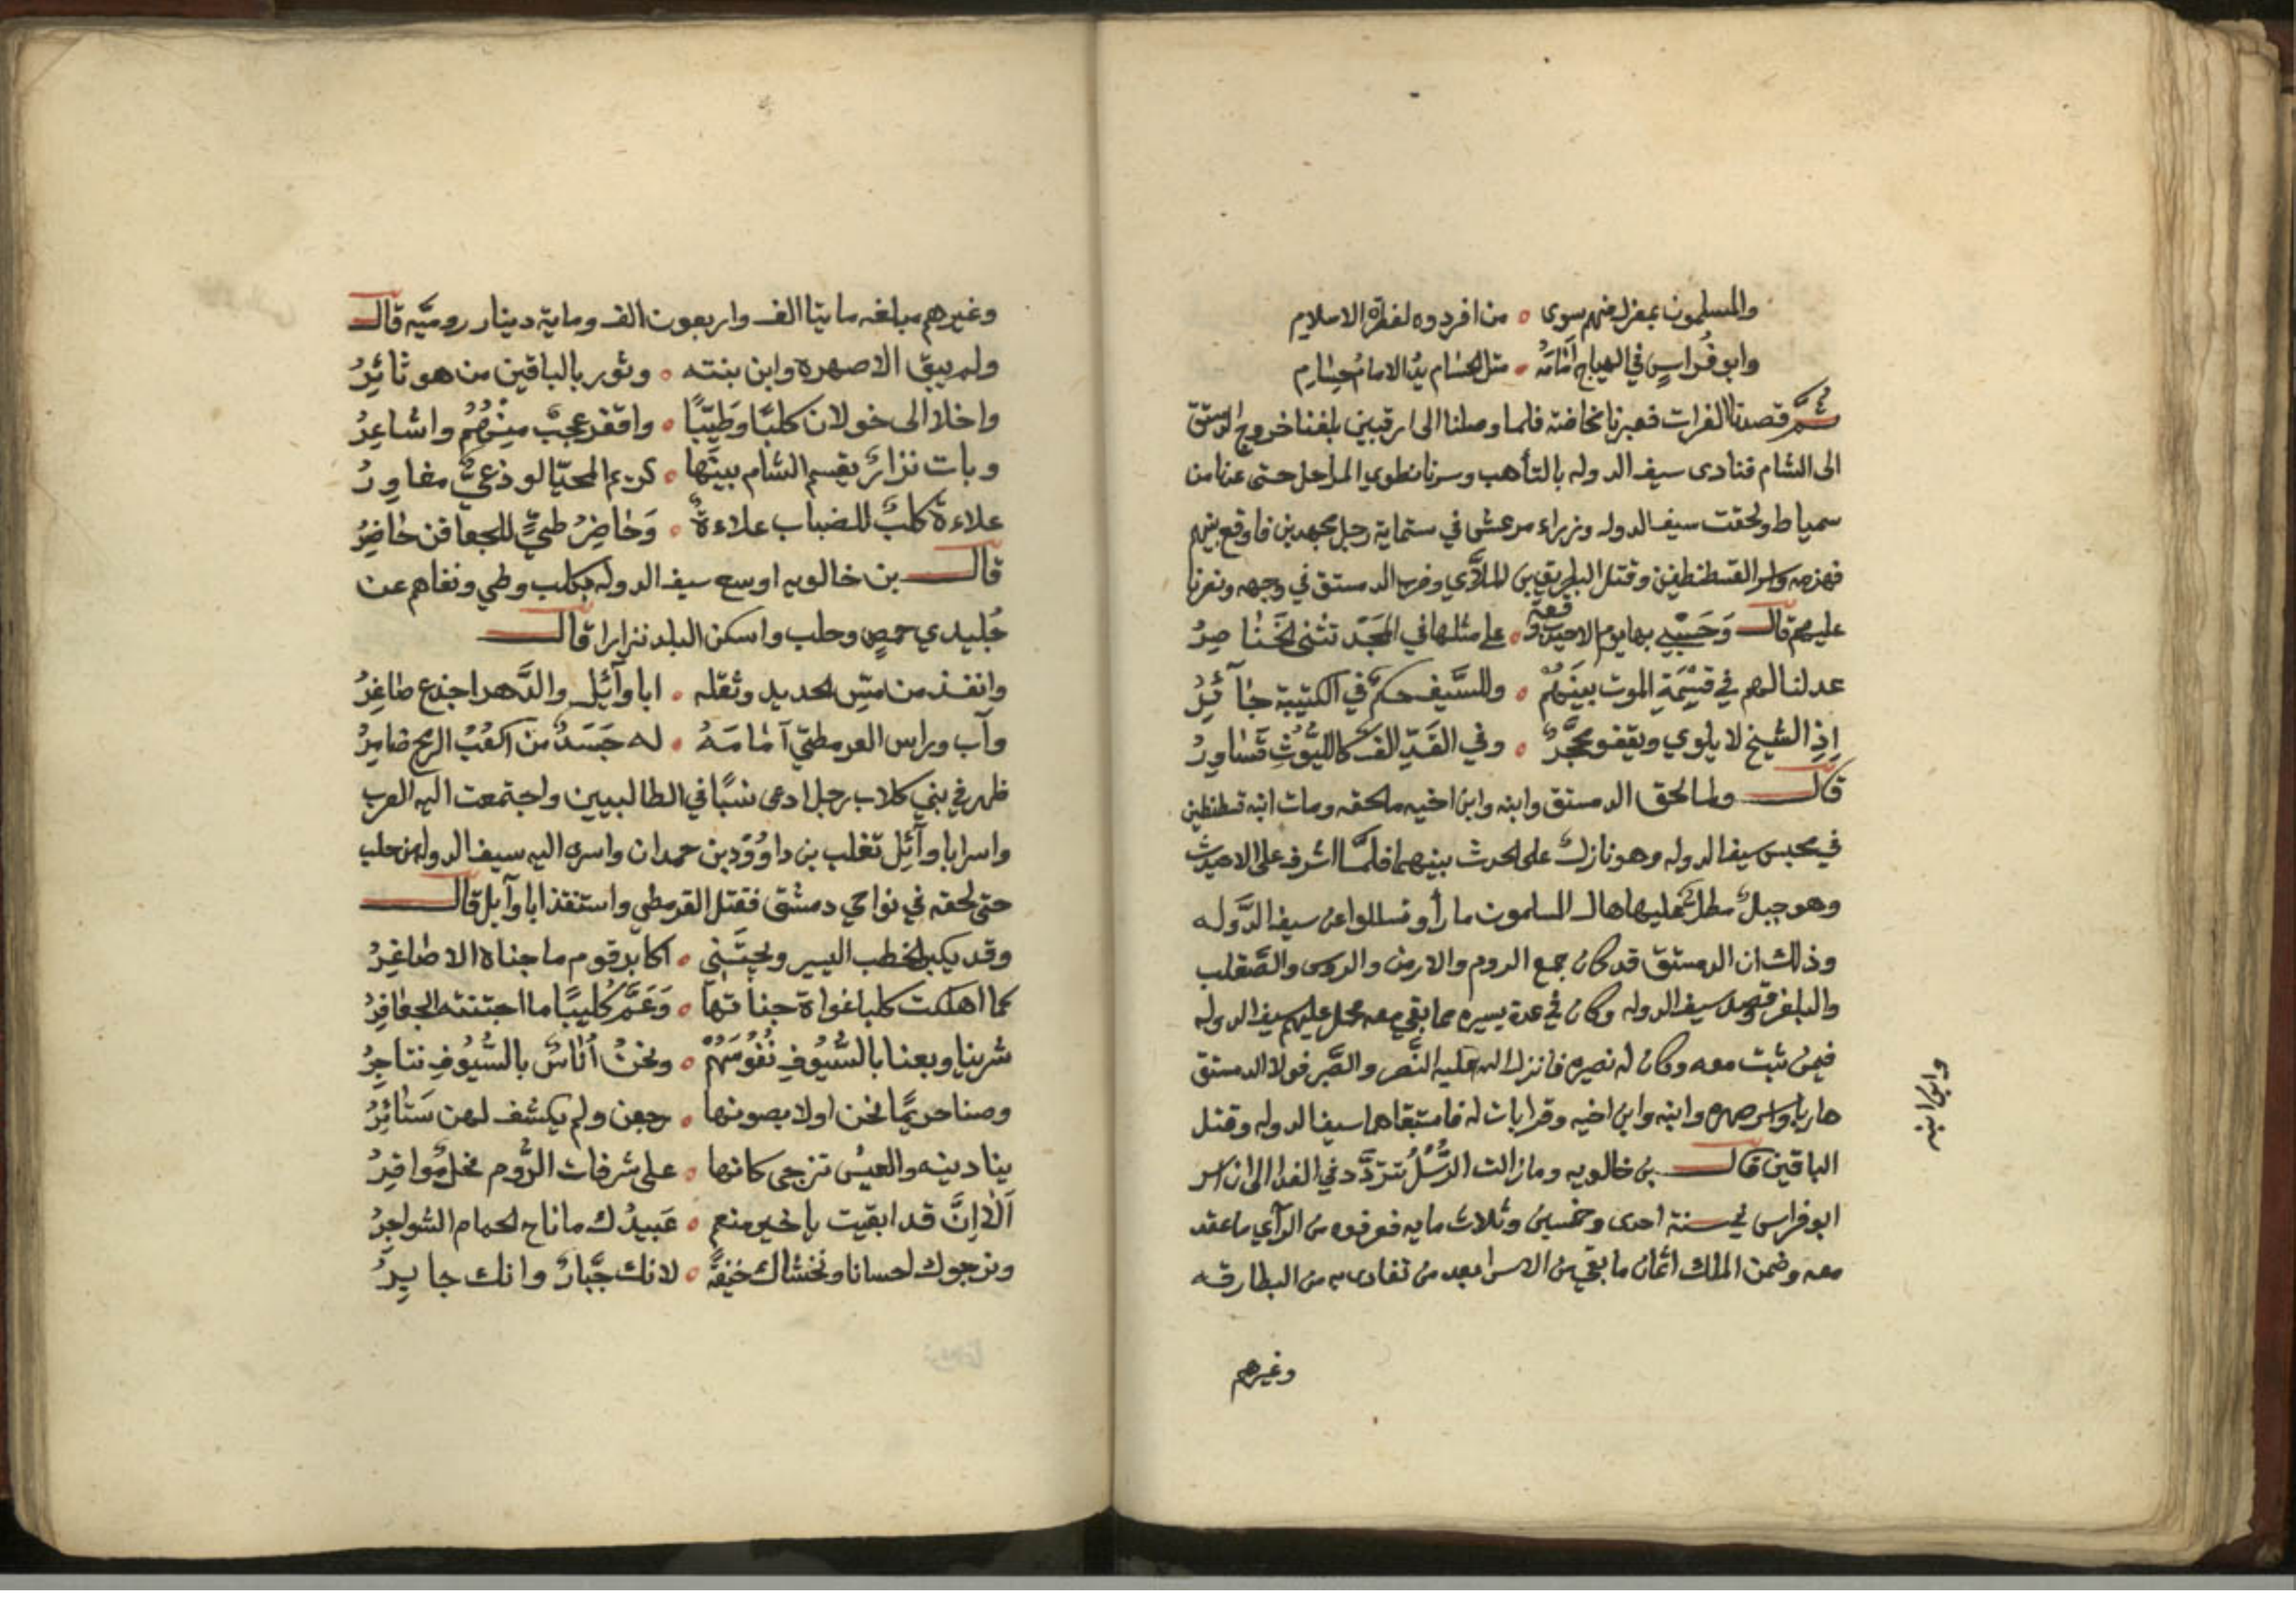 والمسلمون بمعزل منهم سوى ۰ من افردوه لفطرة الاسلام
وابو فراس في الهياج أمامه ۰ مثل الحسام يد الامام حسام
ثم قصدنا الفرات فعبرنا مخاضة فلما وصلنا الى ارقبين بلغنا خروج الدمستق
الى الشام فنادى سيف الدوله بالتأهب وسرنا نطوي المراحل حتى عدنا من
سمياط ولحقت سيف الدوله وزراء مرعش في ستماية رجل مجهدين فاوقع بينهم
فهزمه واسر القسطنطين وقتل البطريق بن الملآي وضرب الدمستق في وجهه ونصرنا
عليهم قال وَحَسْبي بها يوم الاحيدب وقعة ۰ على مثلها في المجد تثنى الخناصِرُ
عدلنا لهم في قسْمَةِ الموت بينَهُمْ ۰ وللسَّيف حكم في الكتيبة جآئِرُ
إذِ الشيخ لا يلوي ويقفو محجَّرٌ ۰ وفي القَدّ الف كالليُوثِ قَسَاوِرُ
قال ولما لحق الدمستق وابنه وابن اخيه ما لحقه ومات ابنه قسطنطين
في محبس سيف الدوله وهو نازل على الحدث بينهما فلمَّا اشرف على الاحيدب
وهو جبل مطل عليها هال المسلمون ما رأو فسللوا عن سيف الدَّوله
وذلك ان الدمستق قد كان جمع الروم والارمن والروس والصَّقلب
والبلغر وقصد سيف الدوله وكان في عدة يسيره مما بقي معه فحمل عليهم سيف الدوله
فيمن ثبت معه وكان له نصيره فانزل الله عليه النَّصر والصَّبر فولا الدمستق
هاربا واسر صهره وابنه وابن اخيه وقرابات له فاستبقاهم سيف الدوله وقتل
الباقين قال بن خالويه وما زالت الرُّسُلُ تتردَّد في الفدا الى ان اسر
ابو فراس في سنة احدى وخمسين وثلاث مايه فعرفوه من الرآي ما عقد
معه وضمن الملك اثمان ما بقي من الاسرا بعد من تفادى به من البطارقه
وابن ابنه
وغيرهم
وغيرهم مبلغه مايتا الف واربعون الف ومايه دينار روميَّه قال
ولم يبق الا صهره وابن بنته ۰ وثور بالباقين من هو ثائِرُ
واخلا الى خولان كلبًا وطَيّبًا ۰ واقفر عجبٌ مِنْهُمُ واشاعِرُ
وبات نزارٌ يقسم الشام بينَها ۰ كريم المحيّا لوذعيٌّ مغاوِرُ
علاءة كلبٌ للضباب علاءةٌ ۰ وَحاضِرُ طيٍّ للجعافن حاضِرُ
قال بن خالويه اوسع سيف الدوله بكلب وطي ونفاهم عن
جُليدي حمص وحلب واسكن البلد نزارا قال
وانقذ من مسّ الحديد وثقله ۰ ابا وآئِلٍ والدَّهر اجذع صاغِرُ
وآب وراس القرمطيّ آمامَهُ ۰ له جَسَدٌ من اكعُبُ الرمح ضامِرُ
ظهر في بني كلاب رجل ادعى نسبًا في الطالبيين واجتمعت اليه العرب
واسر ابا وآئِل تغلب بن داوُوْد بن حمدان واسرى اليه سيف الدوله من حلب
حتى لحقه في نواحي دمشق فقتل القرمطي واستنقذ ابا وآيل قال
وقد يكبر الخطب اليسير ويجتَنِي ۰ اكابر قوم ما جناه الاصاغِرُ
كما اهلكت كلبا غواة جناتها ۰ وَعَمَّ كُليبًا ما اجتنته الجعافِرُ
شرينا وبعنا بالسُّيُوفِ نُفُوسَهُمْ ۰ ونحنُ أُناسٌ بالسُّيُوفِ نتاجِرُ
وصنا حريمًا نحن اولا بصونها ۰ رجعن ولم يكشف لهن سَتَائِرُ
ينادينه والعيسُ تزجى كانها ۰ على شرفات الرُّوم نخلٌ مُواقِرُ
اَلا إنَّ قد ابقيت يا خير منعم ۰ عَبيدُك ما ناح الحمام السَّواجِرُ
ونرجوك احسانا ونخشاك خيفَةً ۰ لانك جَّبارٌ وانك جابِرُ